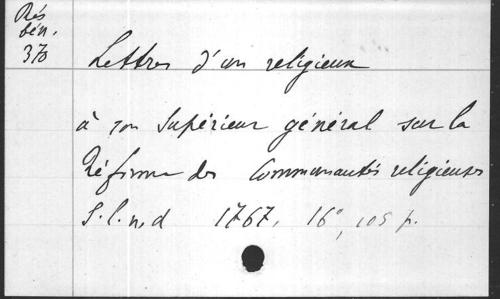 Rés
bén.
370
Lettres d'un religieux
à son Supérieur général sur la
Réforme des Communautés religieuses
S. l. n. d 1767. 16°, 105 p.